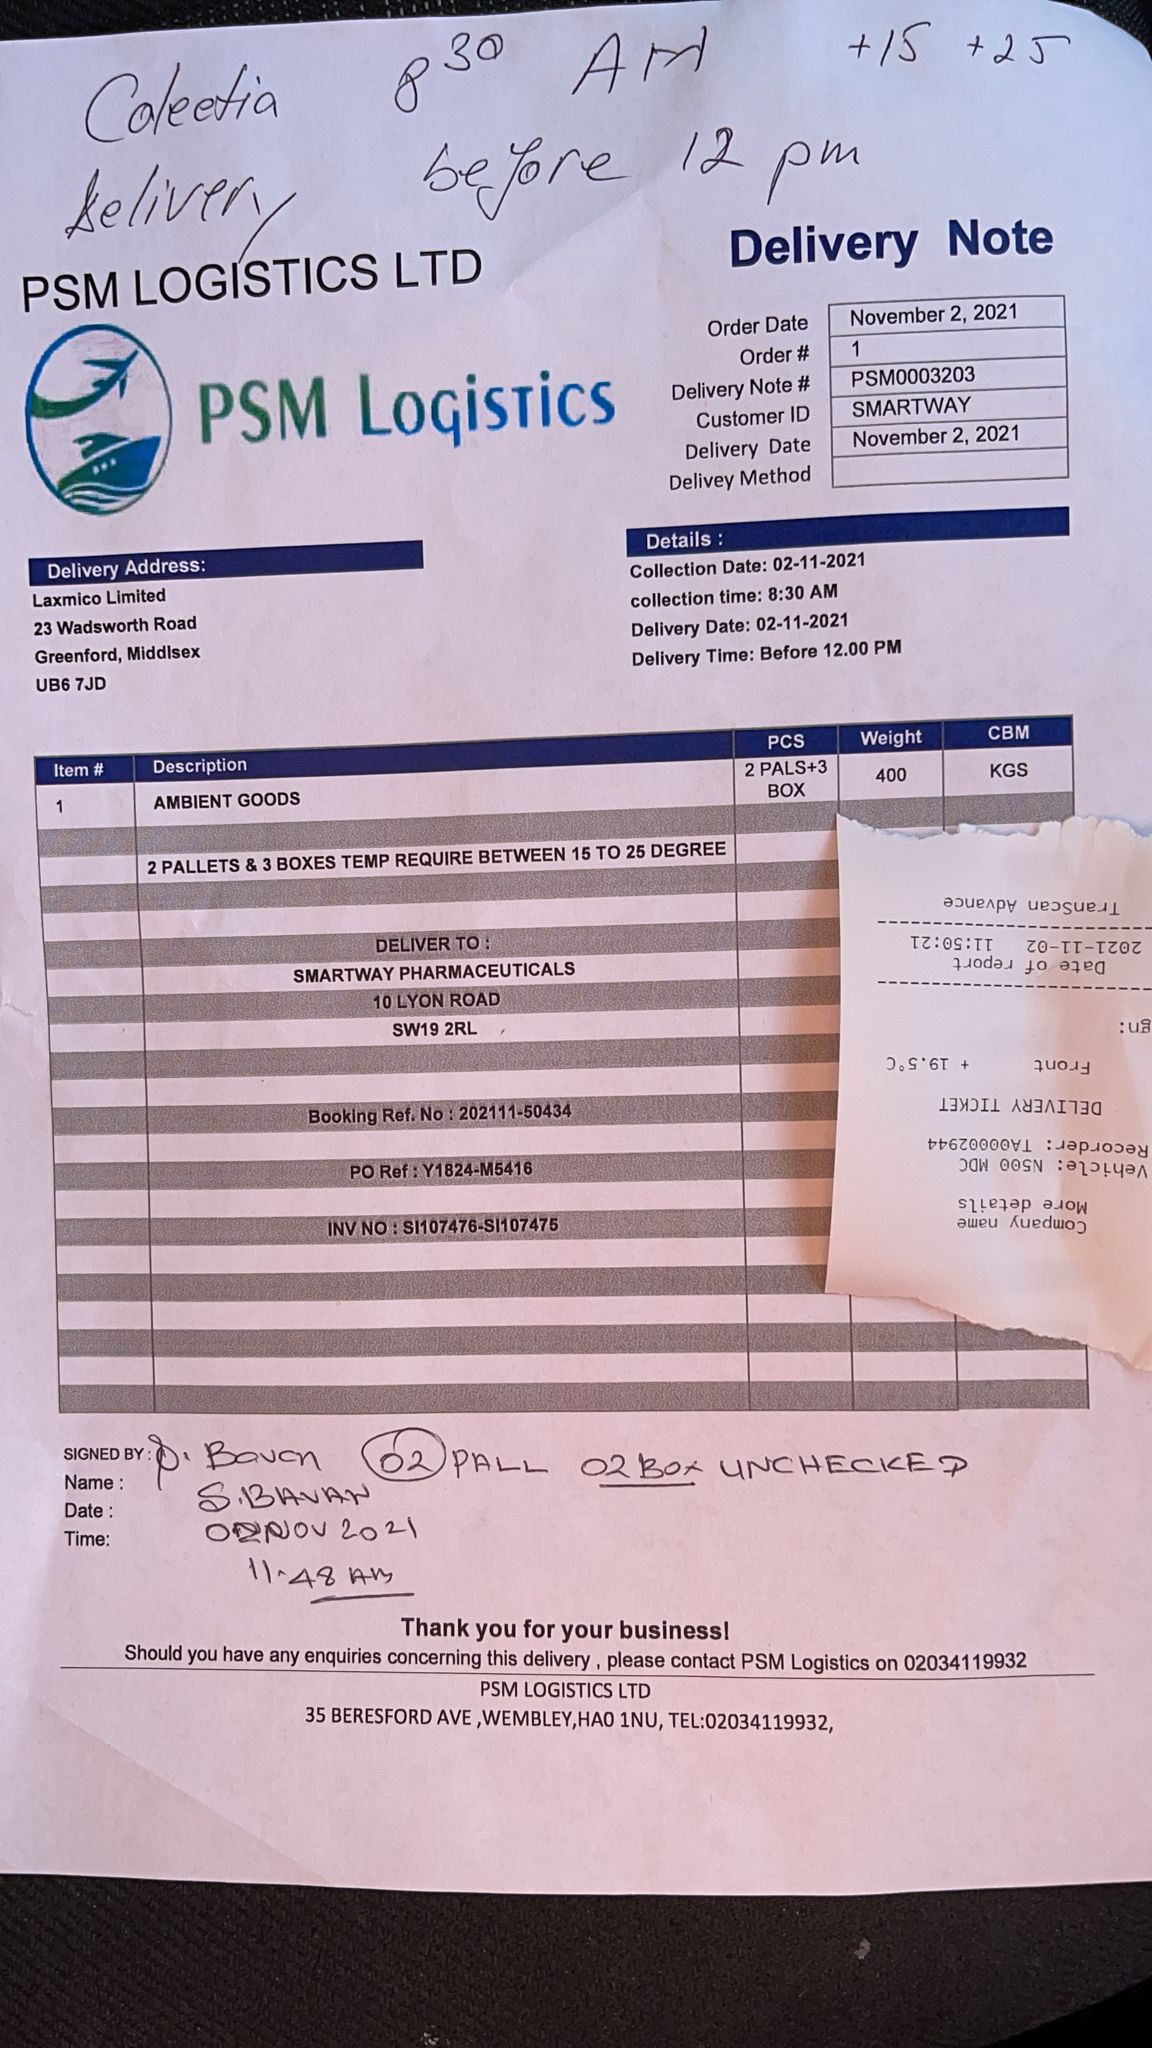 Coleetia 8 30 AM +15 +25
delivery before 12 pm
PSM LOGISTICS LTD
Delivery Note
PSM Logistics
Order Date November 2, 2021
Order # 1
Delivery Note # PSM0003203
Customer ID SMARTWAY
Delivery Date November 2, 2021
Delivey Method
Delivery Address:
Laxmico Limited
23 Wadsworth Road
Greenford, Middlsex
UB6 7JD
Details :
Collection Date: 02-11-2021
collection time: 8:30 AM
Delivery Date: 02-11-2021
Delivery Time: Before 12.00 PM
Item # Description PCS Weight CBM
1 AMBIENT GOODS 2 PALS+3 BOX 400 KGS
2 PALLETS & 3 BOXES TEMP REQUIRE BETWEEN 15 TO 25 DEGREE
DELIVER TO :
SMARTWAY PHARMACEUTICALS
10 LYON ROAD
SW19 2RL
Booking Ref. No : 202111-50434
PO Ref : Y1824-M5416
INV NO : SI107476-SI107475
Company name
More details
Vehicle: N500 MDC
Recorder: TA00002944
DELIVERY TICKET
Front + 19.5°C
gn:
--------------------
Date of report
2021-11-02 11:50:21
--------------------
TranScan Advance
SIGNED BY: S. Bavan 02 PALL 02 BOX UNCHECKED
Name : S.BAVAN
Date : 02 NOV 2021
Time: 11.48 AM
Thank you for your business!
Should you have any enquiries concerning this delivery , please contact PSM Logistics on 02034119932
PSM LOGISTICS LTD
35 BERESFORD AVE ,WEMBLEY,HA0 1NU, TEL:02034119932,